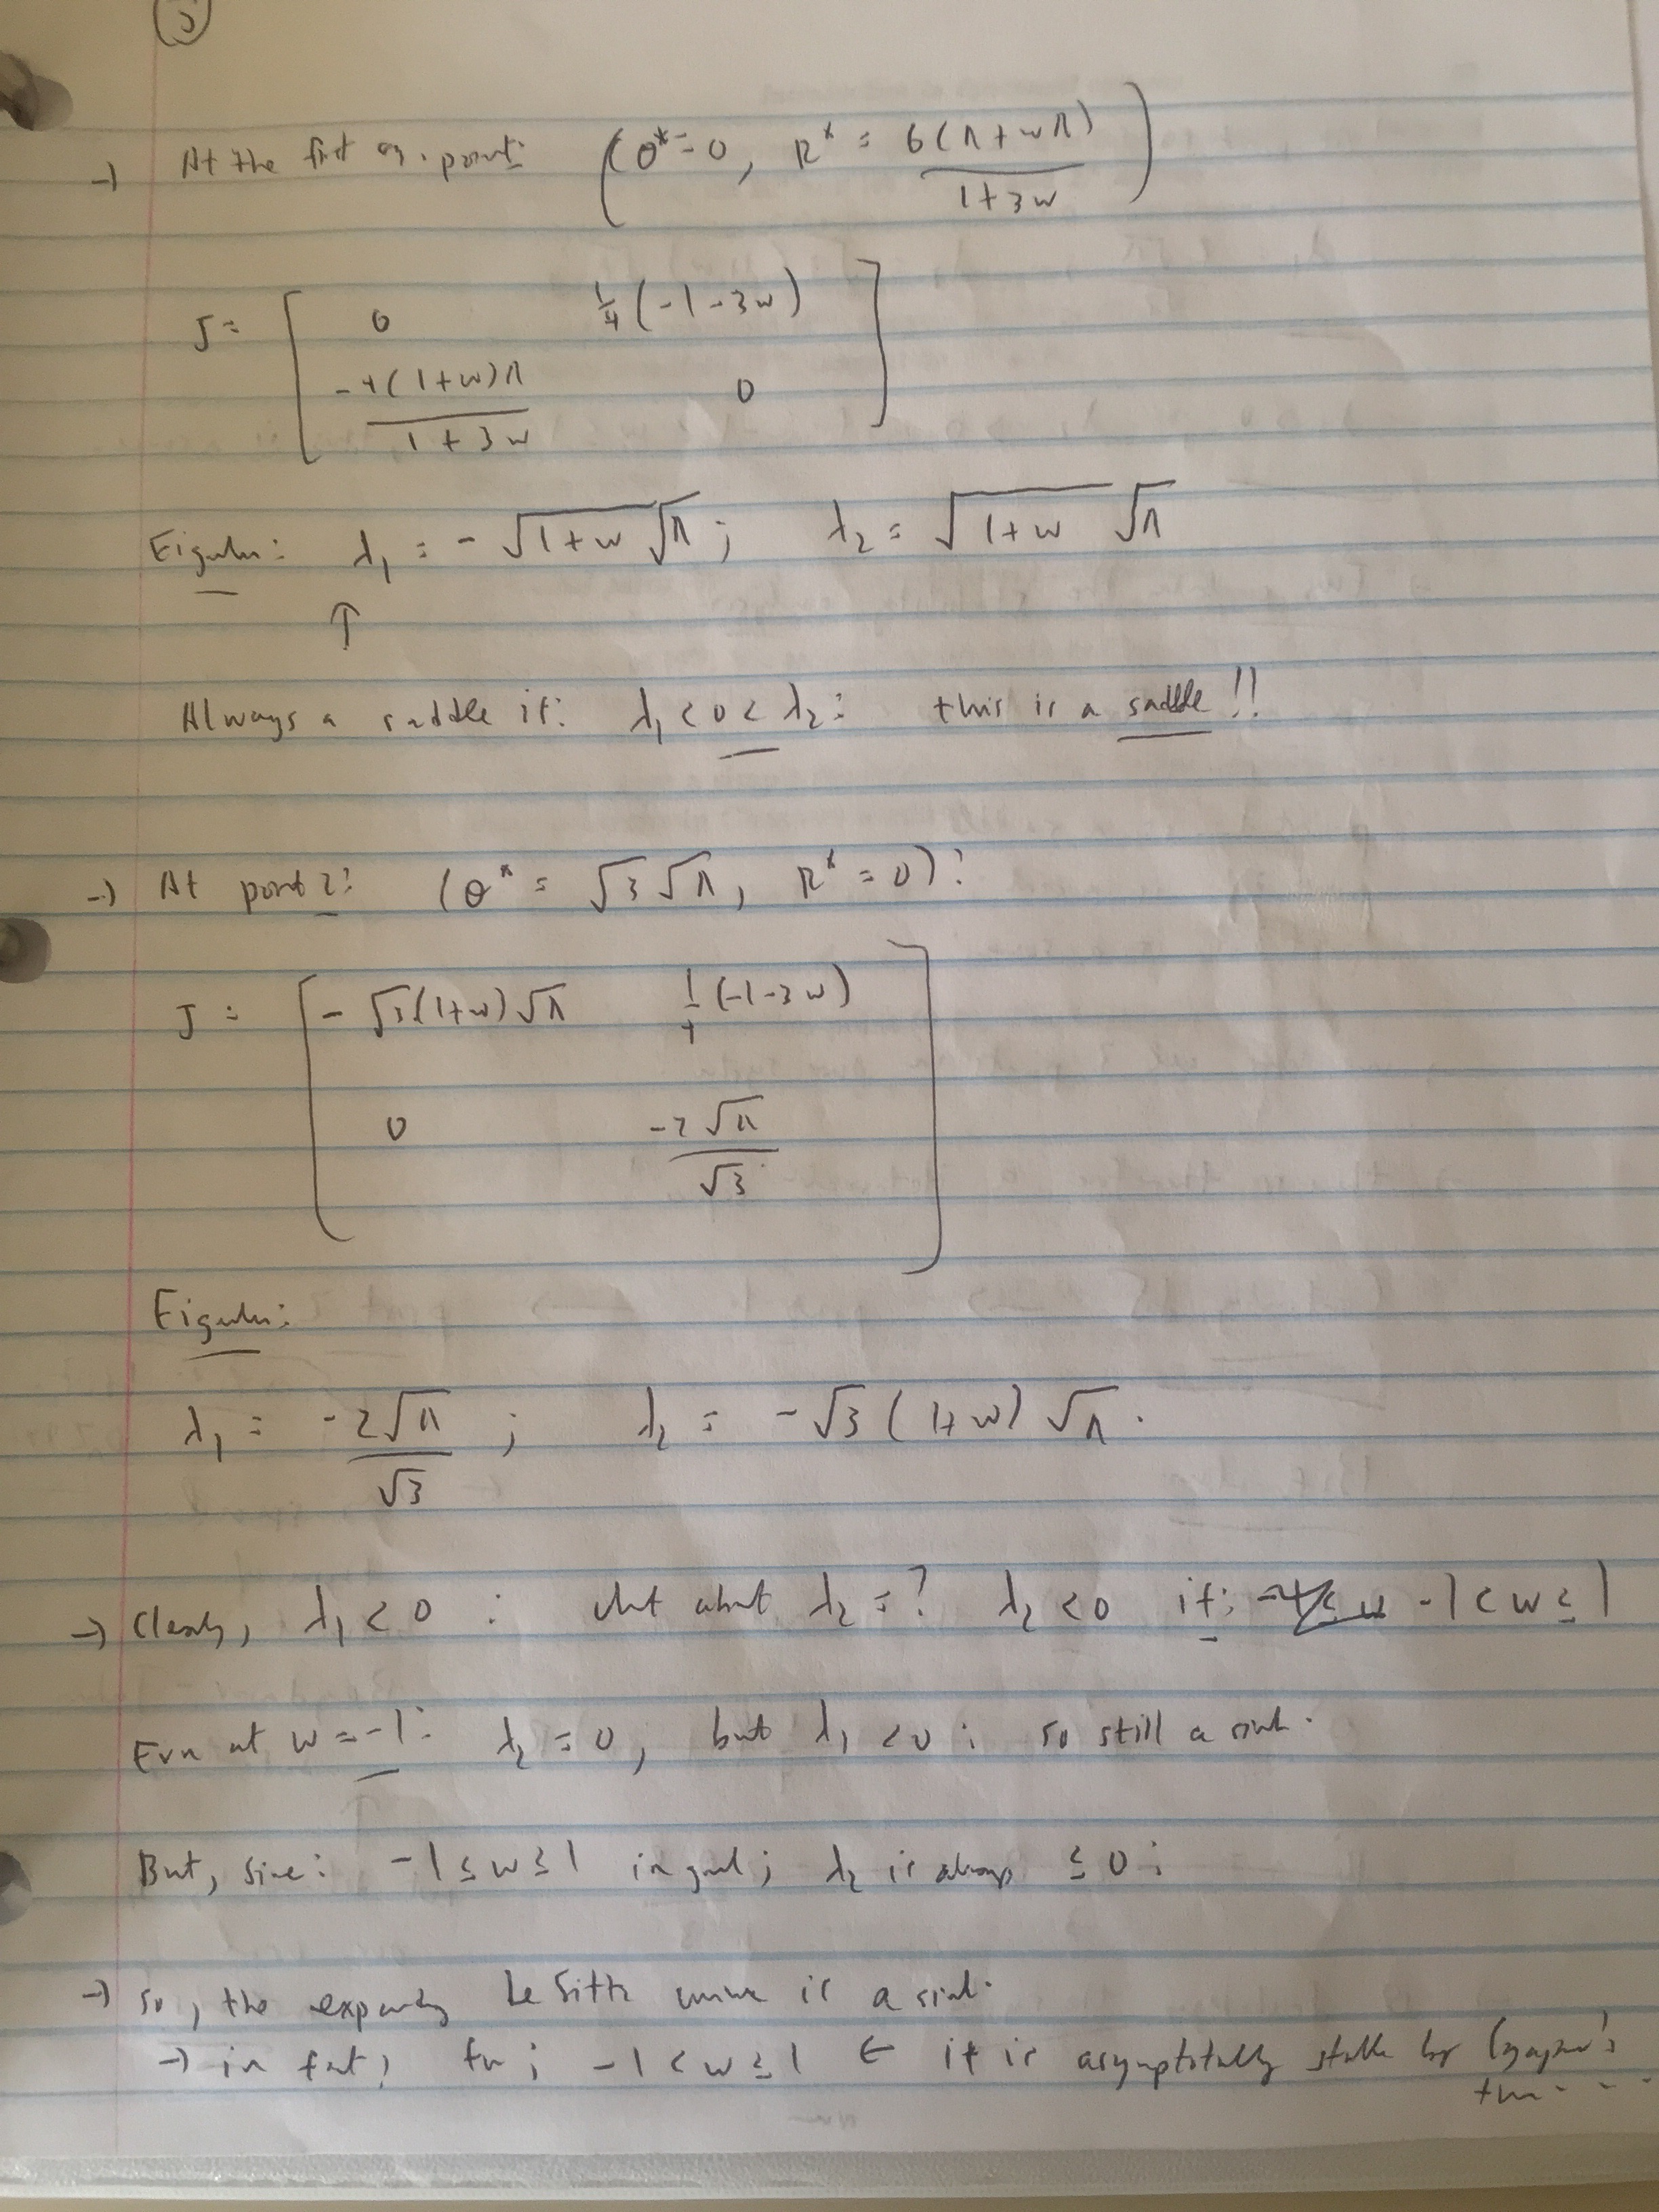 ③
→ At the first eq. point: (θ* = 0, R* = 6(Λ + wΛ) / (1 + 3w))
J = [ 0   1/4 (-1 - 3w)
-4(1 + w)Λ / (1 + 3w)   0 ]
Eigenvalues: λ₁ = -√(1 + w) √Λ ; λ₂ = √(1 + w) √Λ
↑
Always a saddle if: λ₁ < 0 < λ₂ : this is a saddle!!
→ At point 2: (θ* = √3 √Λ, R* = 0):
J = [ -√3 (1+w) √Λ   1/4 (-1-3w)
0   -2√Λ / √3 ]
Eigenvalues:
λ₁ = -2√Λ / √3 ; λ₂ = -√3 (1+w) √Λ.
→ Clearly, λ₁ < 0 : what about λ₂ = ? λ₂ < 0 if: -1 < w ≤ 1
Even at w = -1: λ₂ = 0, but λ₁ < 0 : so still a sink.
But, since: -1 ≤ w ≤ 1 in general; λ₂ is always ≤ 0 :
→ so, the expanding de Sitter universe is a sink.
→ in fact, for ; -1 < w ≤ 1 ← it is asymptotically stable by Lyapunov's
thm...